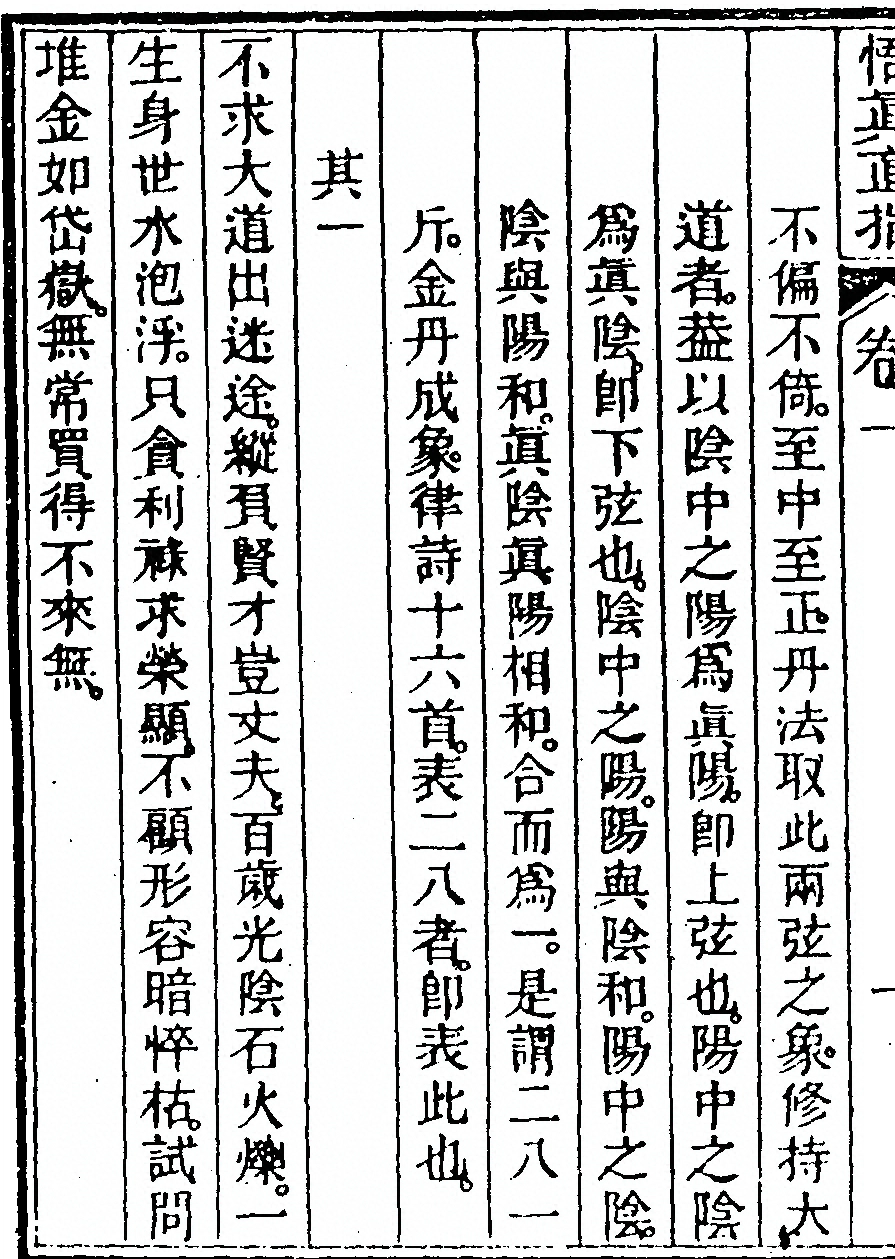 悟真直指 卷一 一
不偏不倚。至中至正。丹法取此兩弦之象。修持大
道者。葢以陰中之陽爲真陽。卽上弦也。陽中之陰
爲真陰。卽下弦也。陰中之陽。陽與陰和。陽中之陰。
陰與陽和。真陰真陽相和。合而爲一。是謂二八一
斤。金丹成象。律詩十六首。表二八者。卽表此也。
其一
不求大道出迷途。縱負賢才豈丈夫。百歲光陰石火爍。一
生身世水泡浮。只貪利祿求榮顯。不顧形容暗悴枯。試問
堆金如岱嶽。無常買得不來無。